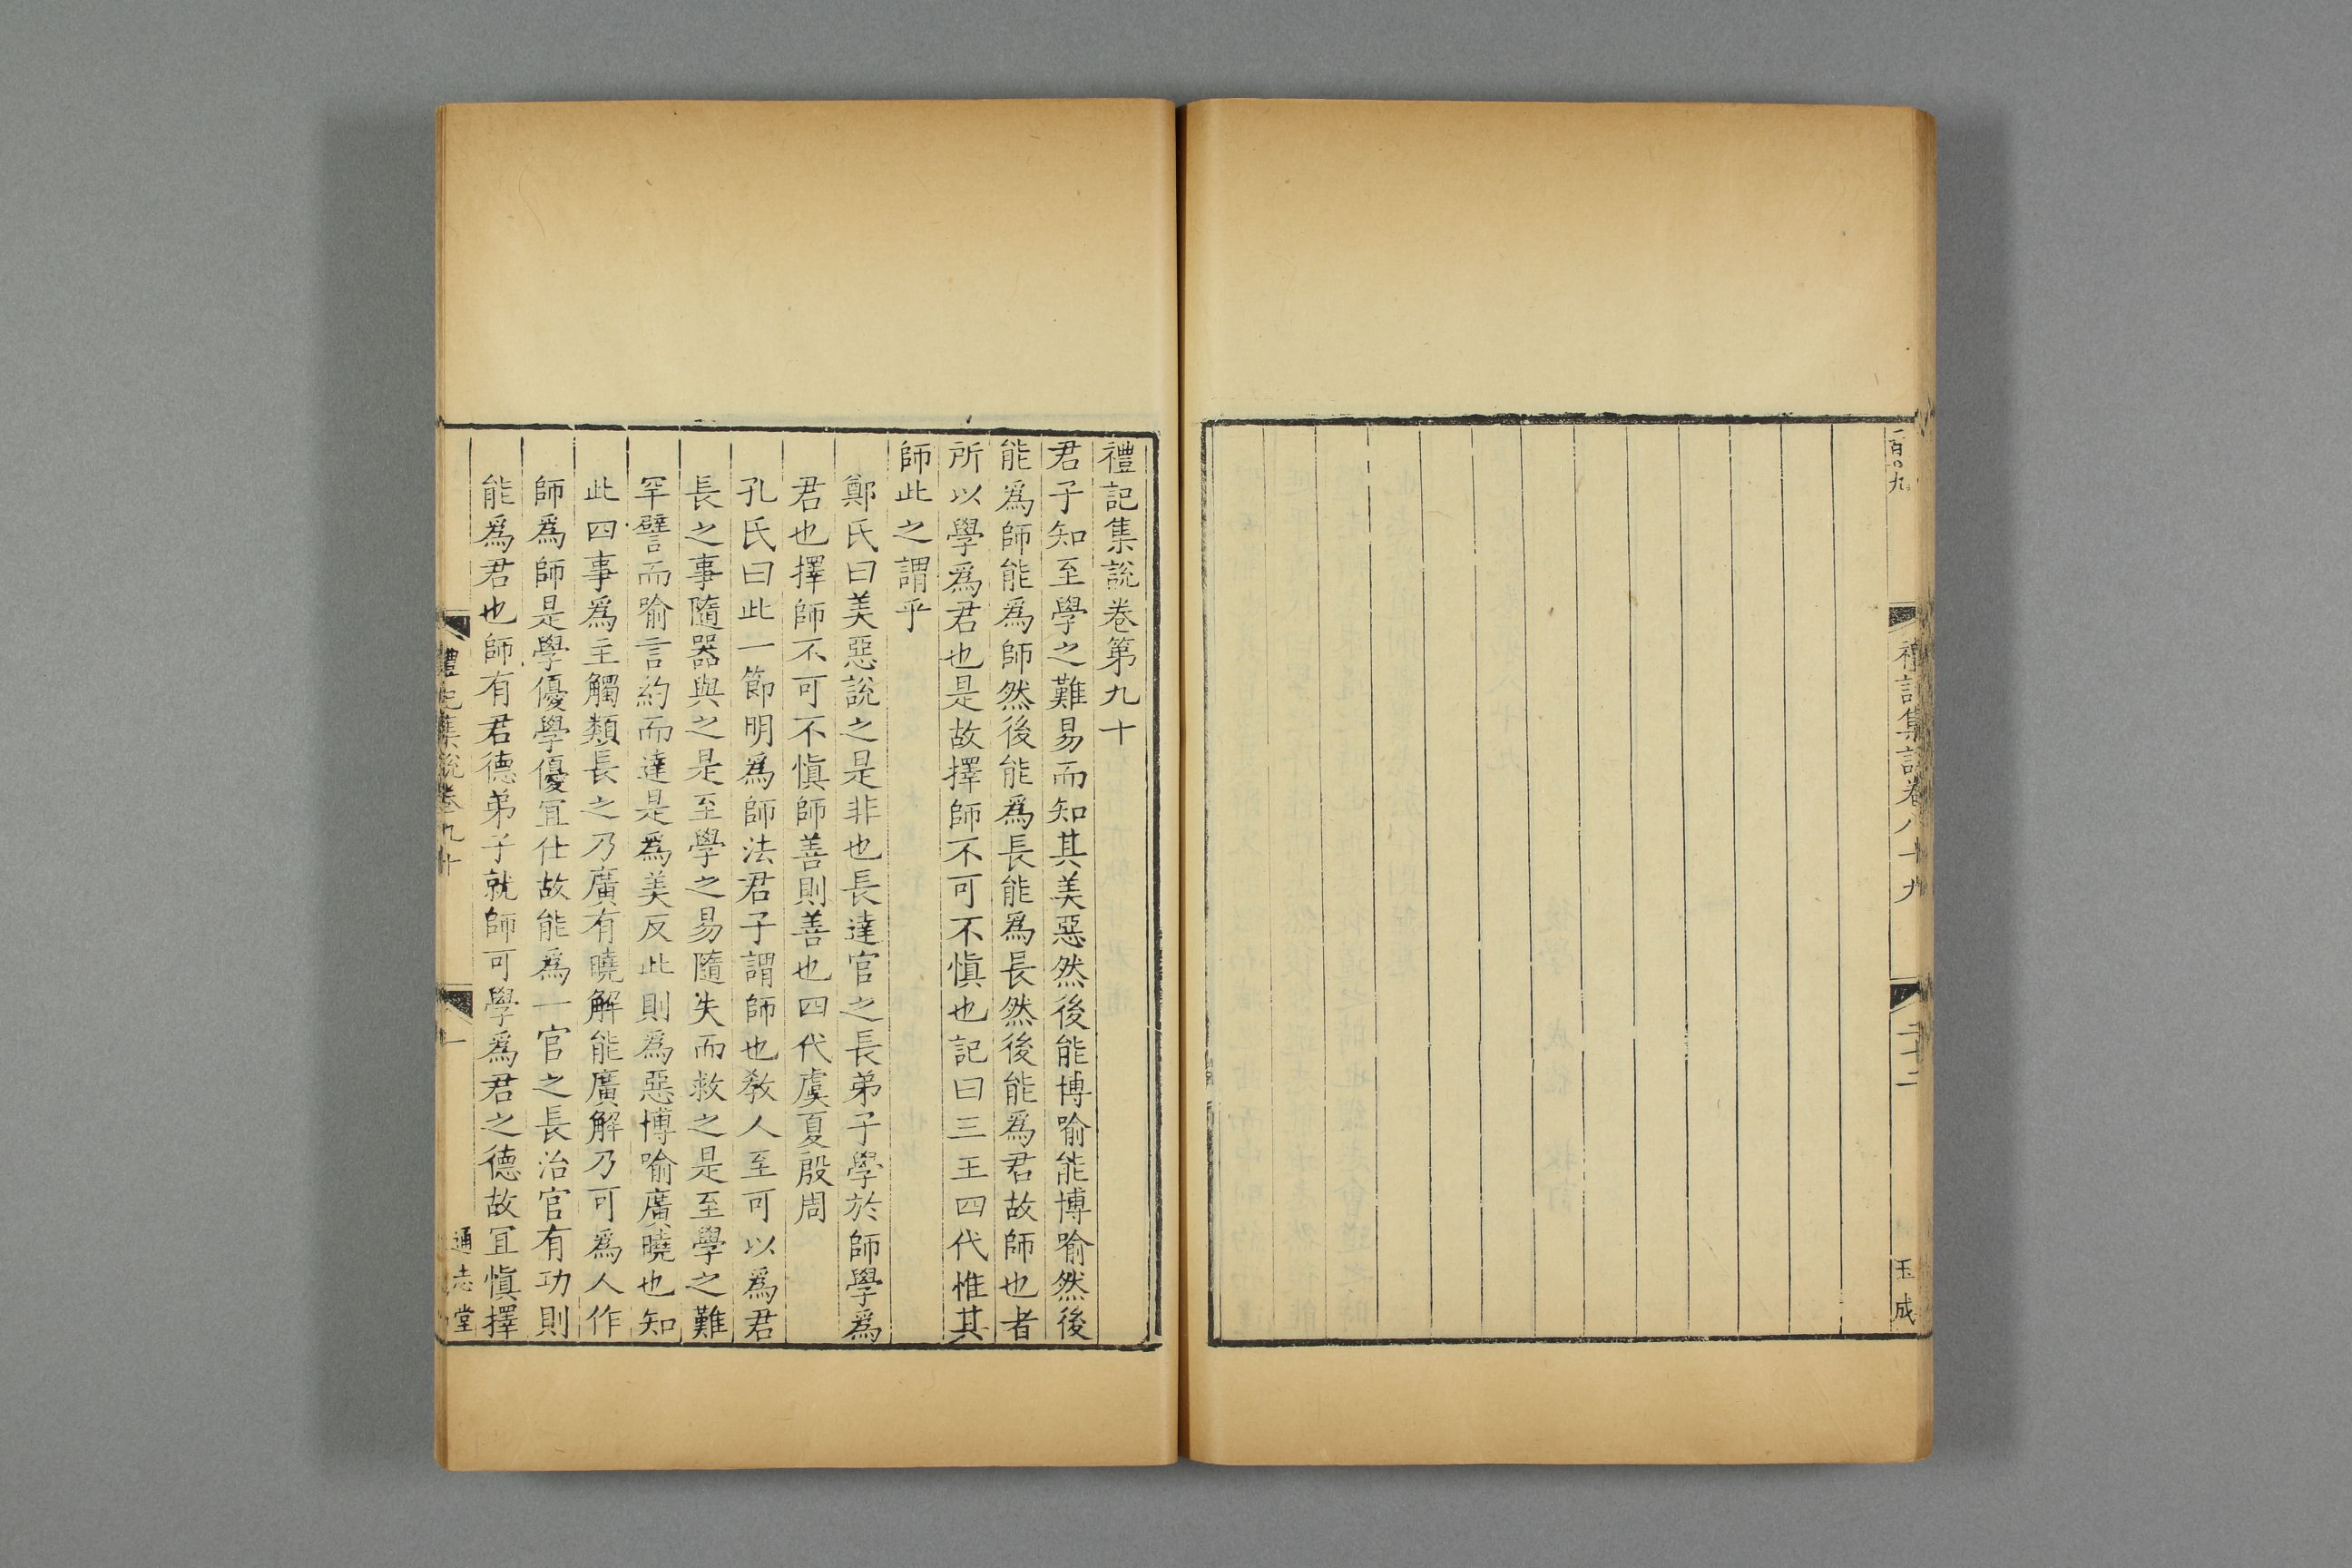 禮記集說卷八十九
二十二
玉成
禮記集說卷第九十
君子知至學之難易而知其美惡然後能博喻能博喻然後
能爲師能爲師然後能爲長能爲長然後能爲君故師也者
所以學爲君也是故擇師不可不愼也記曰三王四代惟其
師此之謂乎
鄭氏曰美惡說之是非也長達官之長弟子學於師學爲
君也擇師不可不愼師善則善也四代虞夏殷周
孔氏曰此一節明爲師法君子謂師也敎人至可以爲君
長之事隨器與之是至學之易隨失而救之是至學之難
罕譬而喻言約而達是爲美反此則爲惡博喻廣曉也知
此四事爲主觸類長之乃廣有曉解能廣解乃可爲人作
師爲師是學優學優宜仕故能爲一官之長治官有功則
能爲君也師有君德弟子就師可學爲君之德故宜愼擇
禮記集說卷九十
一
通志堂